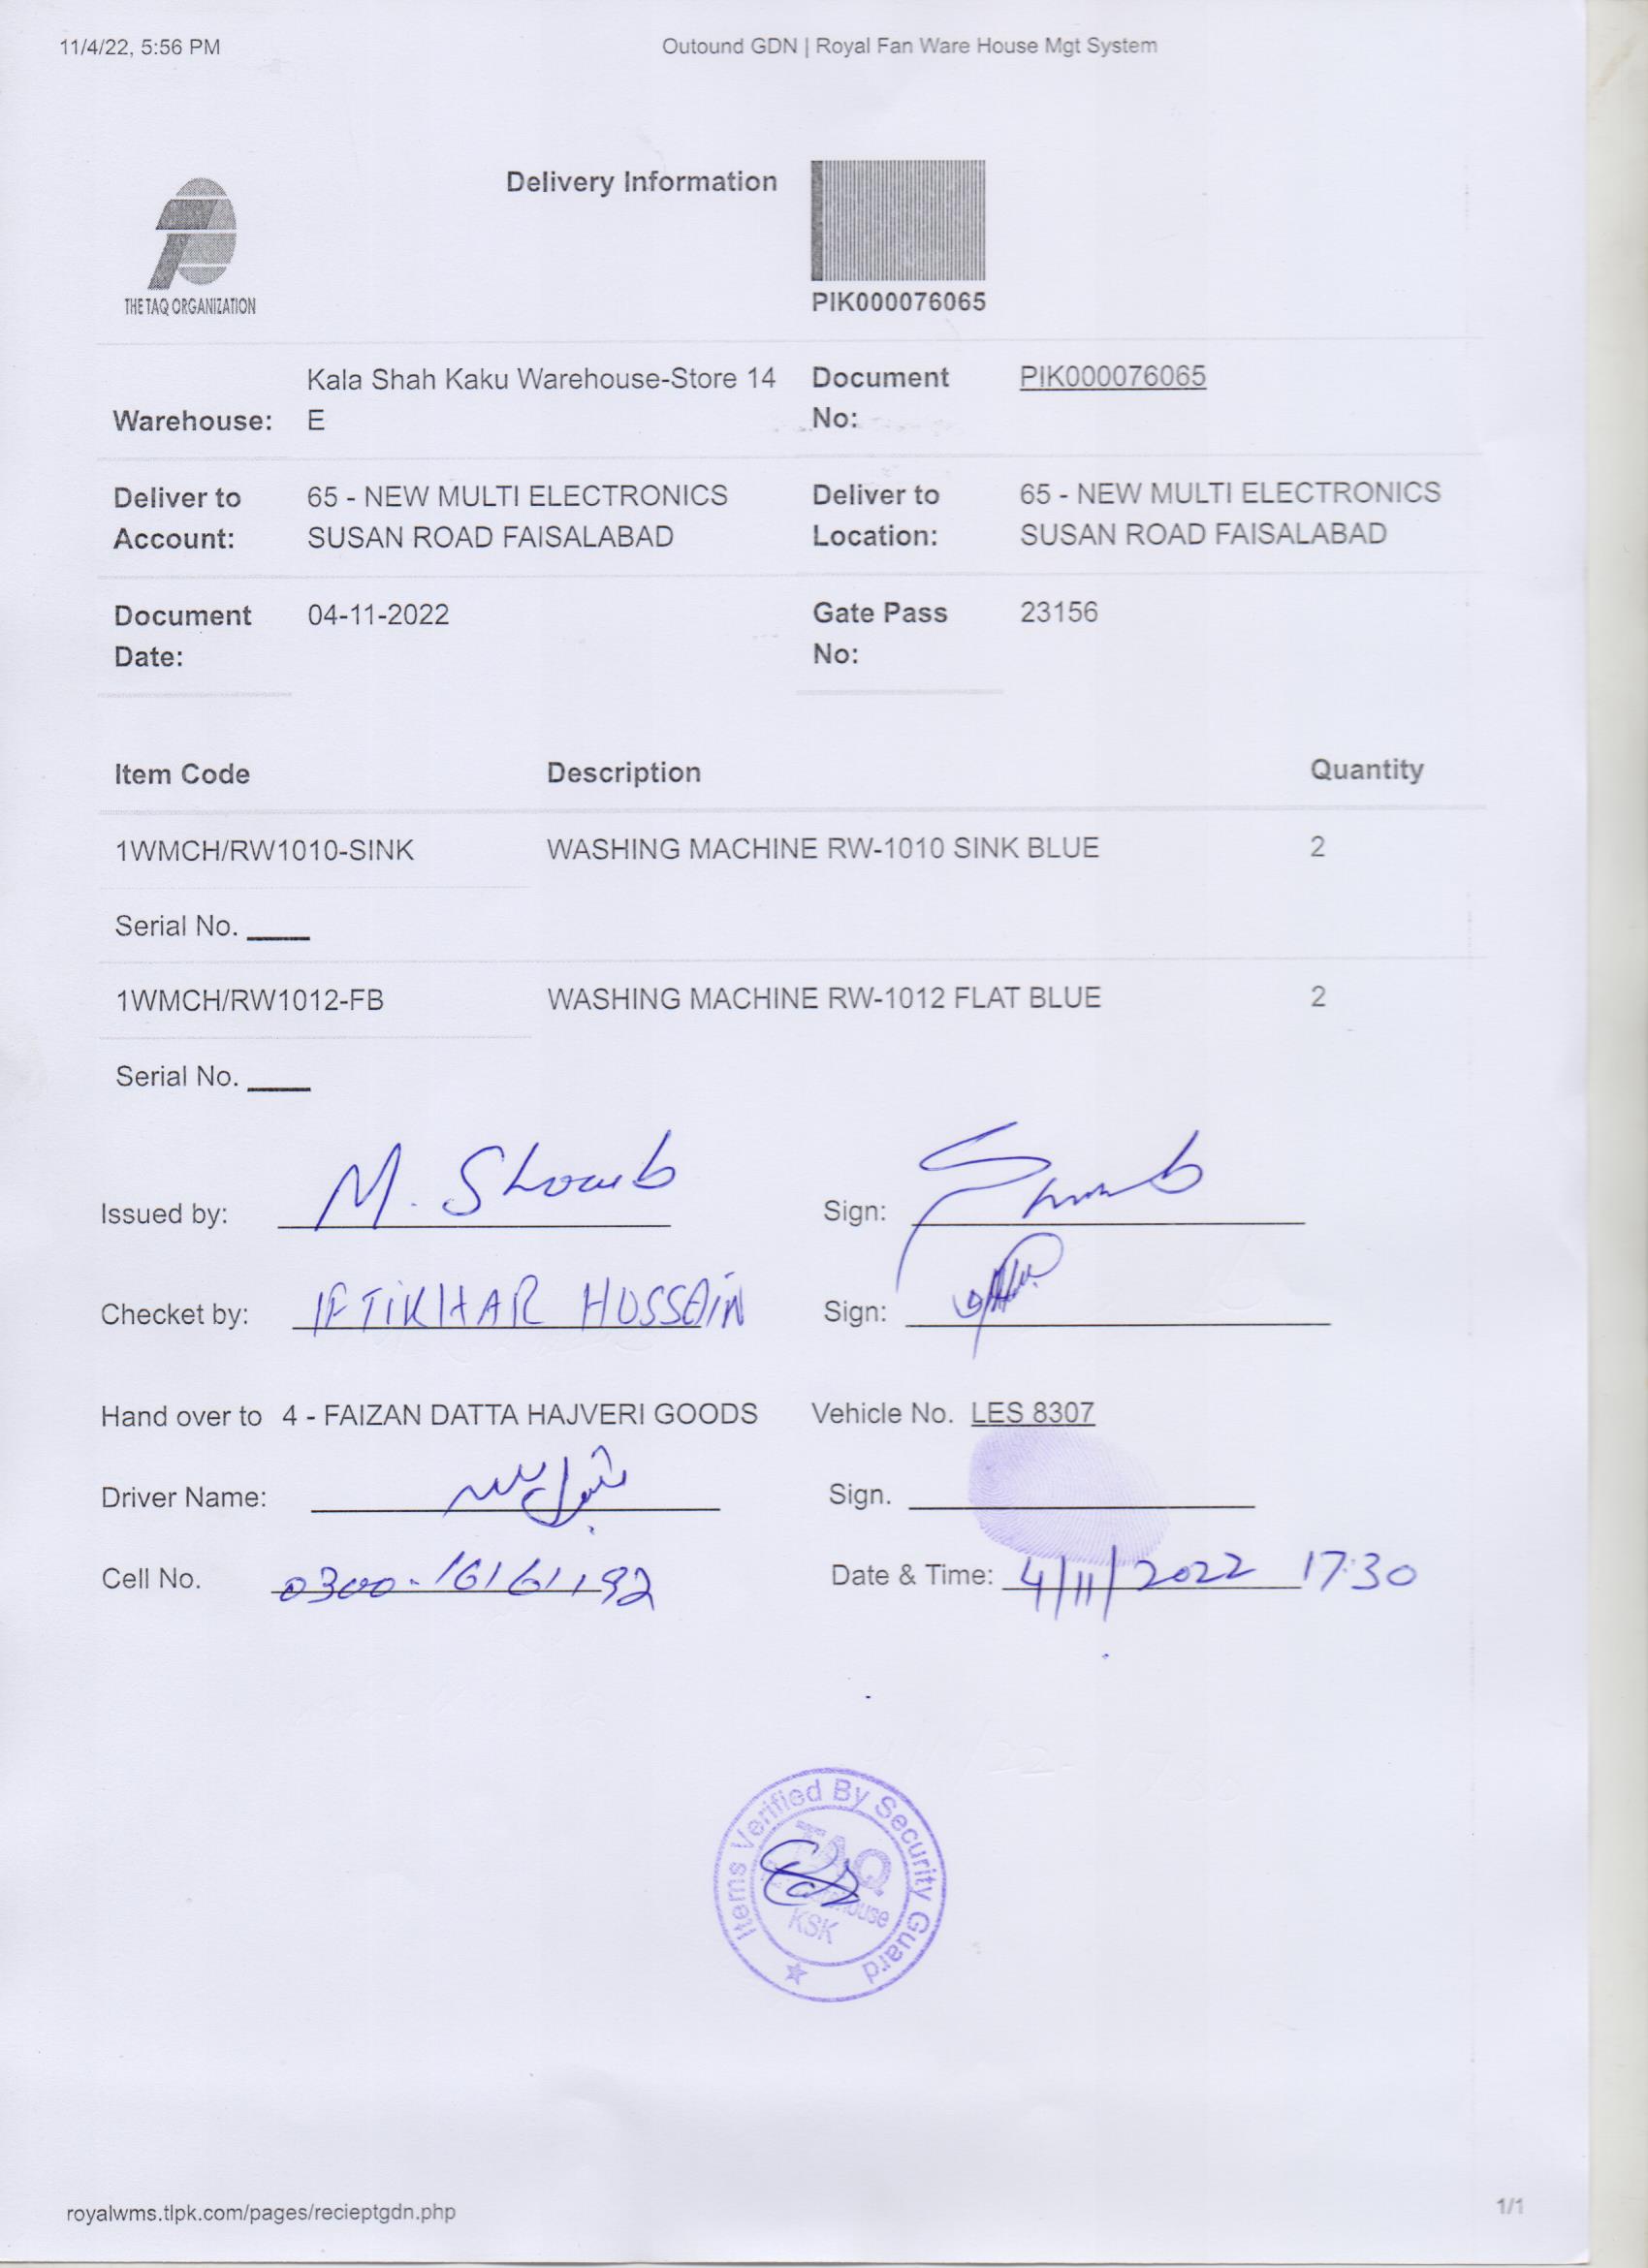 11/4/22, 5:56 PM Outound GDN | Royal Fan Ware House Mgt System
Delivery Information
THE TAQ ORGANIZATION
PIK000076065
Warehouse: Kala Shah Kaku Warehouse-Store 14 E
Document No: PIK000076065
Deliver to Account: 65 - NEW MULTI ELECTRONICS SUSAN ROAD FAISALABAD
Deliver to Location: 65 - NEW MULTI ELECTRONICS SUSAN ROAD FAISALABAD
Document Date: 04-11-2022
Gate Pass No: 23156
Item Code Description Quantity
1WMCH/RW1010-SINK WASHING MACHINE RW-1010 SINK BLUE 2
Serial No. ____
1WMCH/RW1012-FB WASHING MACHINE RW-1012 FLAT BLUE 2
Serial No. ____
Issued by: M. Shoaib Sign:
Checket by: IFTIKHAR HUSSAIN Sign:
Hand over to 4 - FAIZAN DATTA HAJVERI GOODS Vehicle No. LES 8307
Driver Name: Sign.
Cell No. 0300-16161192 Date & Time: 4/11/2022 17:30
Items Verified By Security Guard
TAQ
KSK
royalwms.tlpk.com/pages/recieptgdn.php 1/1